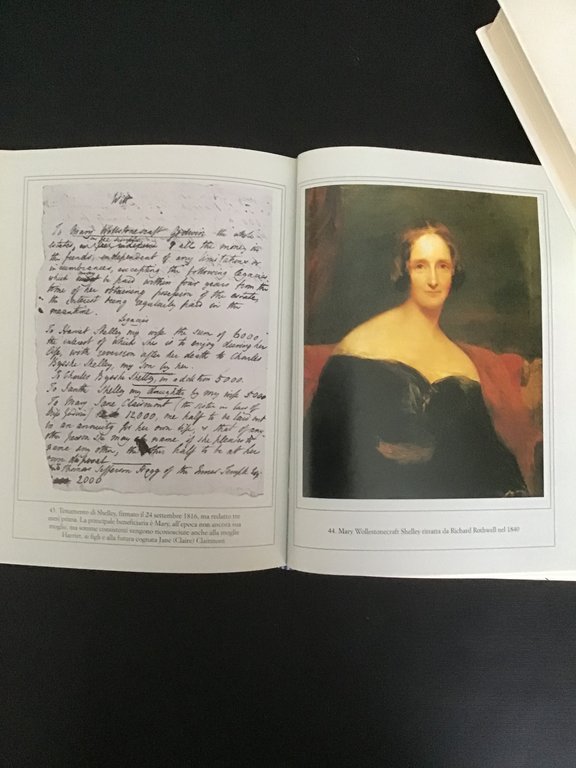 Will
To Mary Wollstonecraft Godwin the whole
estates, &
the funds, independent of any limitations or
incumbrances, excepting the following legacies,
which be paid within four years from the
time of her obtaining possession of the estate,
the interest being regularly paid in the
meantime.
Legacies
To Harriet Shelley my wife the sum of 6000,
the interest of which she is to enjoy during her
life, with reversion after her death to Charles
Bysshe Shelley, my Son by her.
To Charles Bysshe Shelley, in addition 5000.
To Ianthe Shelley my daughter by my wife 5000
To Mary Jane Clairmont (the sister in law of
Miss Godwin) 12,000, one half to be laid out
in an annuity for her own life, & that of any
other person she may name, if she pleases to
name any other, the other half to be at her
own disposal
Thomas Jefferson Hogg of the Inner Temple Esq.
2000
43. Testamento di Shelley, firmato il 24 settembre 1816, ma redatto tre
mesi prima. La principale beneficiaria è Mary, all'epoca non ancora sua
moglie, ma somme consistenti vengono riconosciute anche alla moglie
Harriet, ai figli e alla futura cognata Jane (Claire) Clairmont
44. Mary Wollestonecraft Shelley ritratta da Richard Rothwell nel 1840